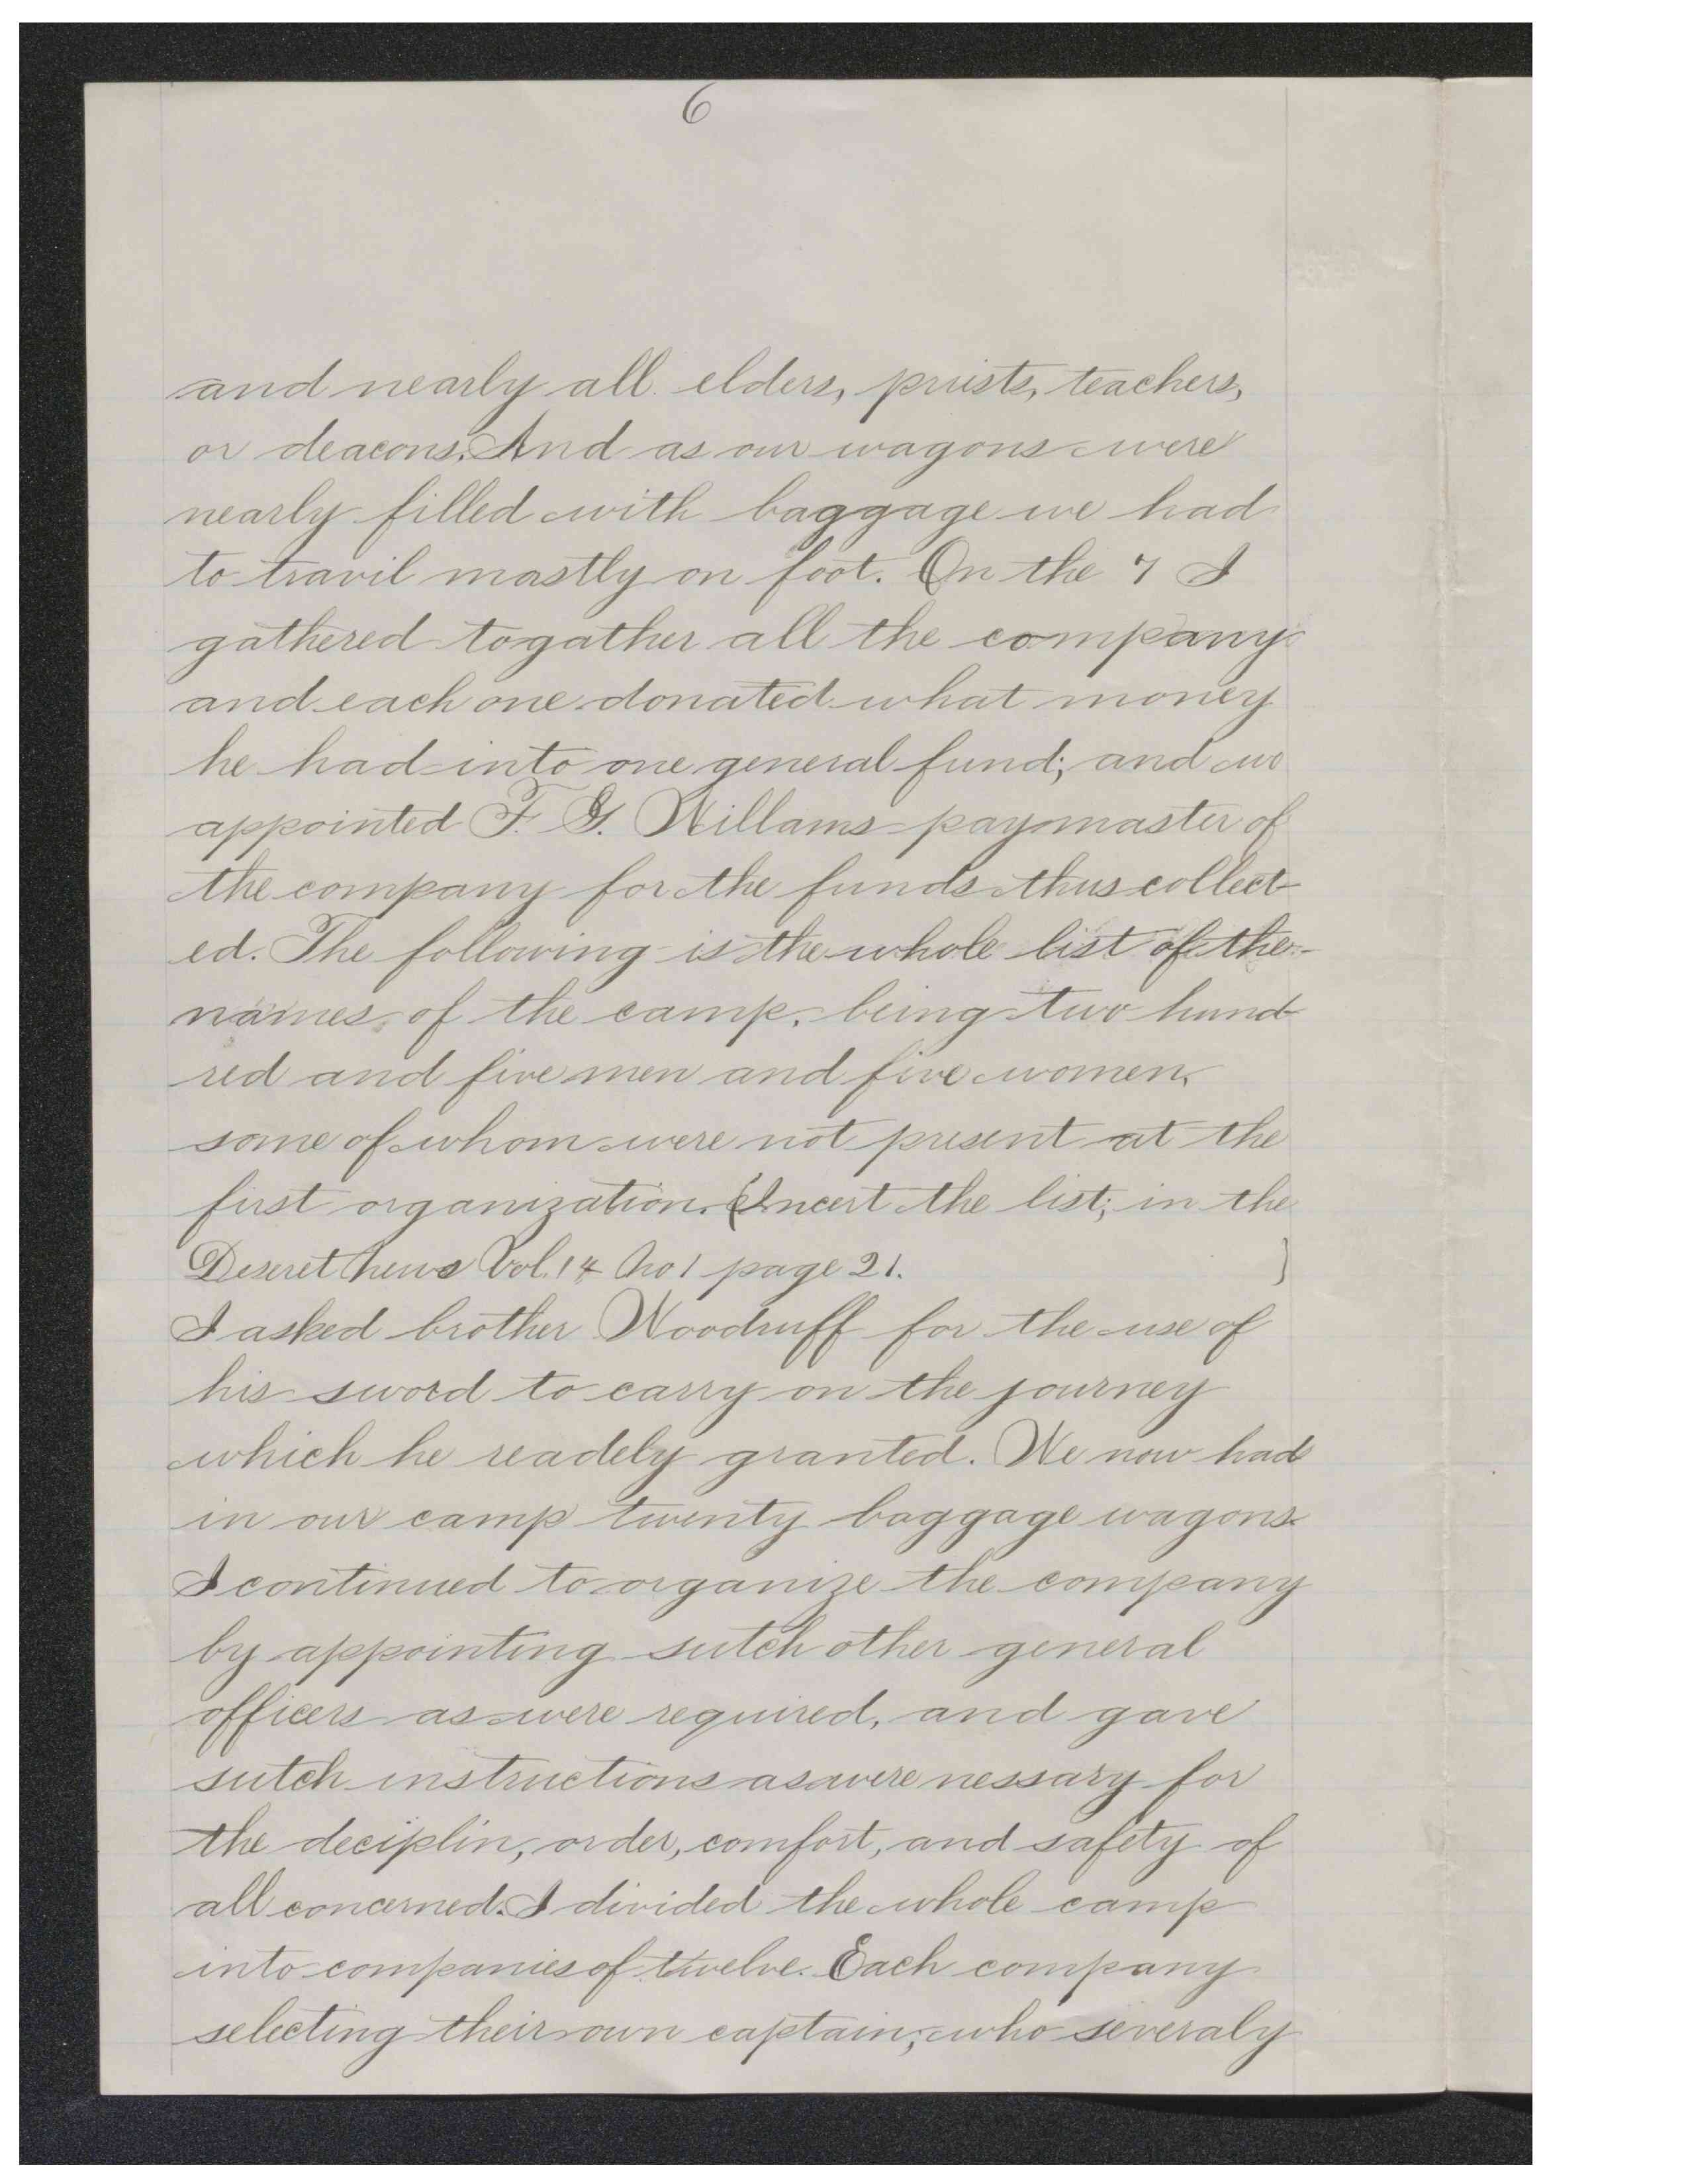 6
and nearly all elders, priists, teachers,
or deacons. And as our wagons were
nearly filled with baggage we had
to travil mostly on foot. On the 7 I
gathered togather all the company
and each one donated what money
he had into one general fund; and we
appointed F. G. Willams paymaster of
the company for the funds thus collect-
ed. The following is the whole list of the
names of the camp, being two hund-
red and five men and five women,
some of whom were not present at the
first organization. (Incert the list; in the
Deseret News Vol. 14 No 1 page 21. )
I asked brother Woodruff for the use of
his sword to carry on the journey
which he readely granted. We now had
in our camp twenty baggage wagons.
I continued to organize the company
by appointing sutch other general
officers as were required, and gave
sutch instructions as were nessary for
the deciplin, order, comfort, and safety of
all concerned. I divided the whole camp
into companies of twelve. Each company
selecting their own captain; who severaly